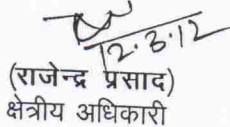 12.3.12
(राजेन्द्र प्रसाद)
क्षेत्रीय अधिकारी